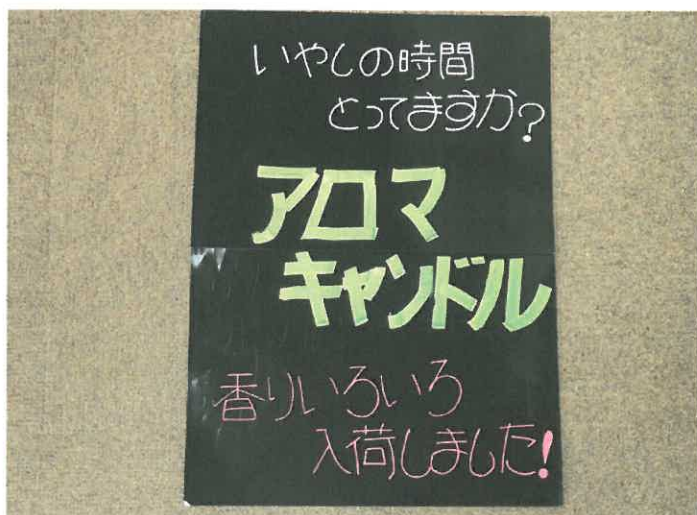 いやしの時間
とってますか?
アロマ
キャンドル
香りいろいろ
入荷しました!